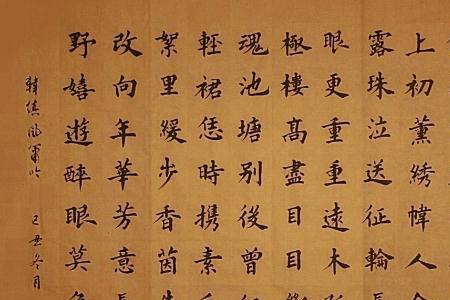 上初薰綉幃人
露珠泣送征輪長
眼更重重遠木
極樓高盡目目
魂池塘別後曾
輕裙恁時携素
絮里緩步香茵
改向年華芳意
野嬉遊醉眼莫
韓縝鳳簫吟 己丑冬月